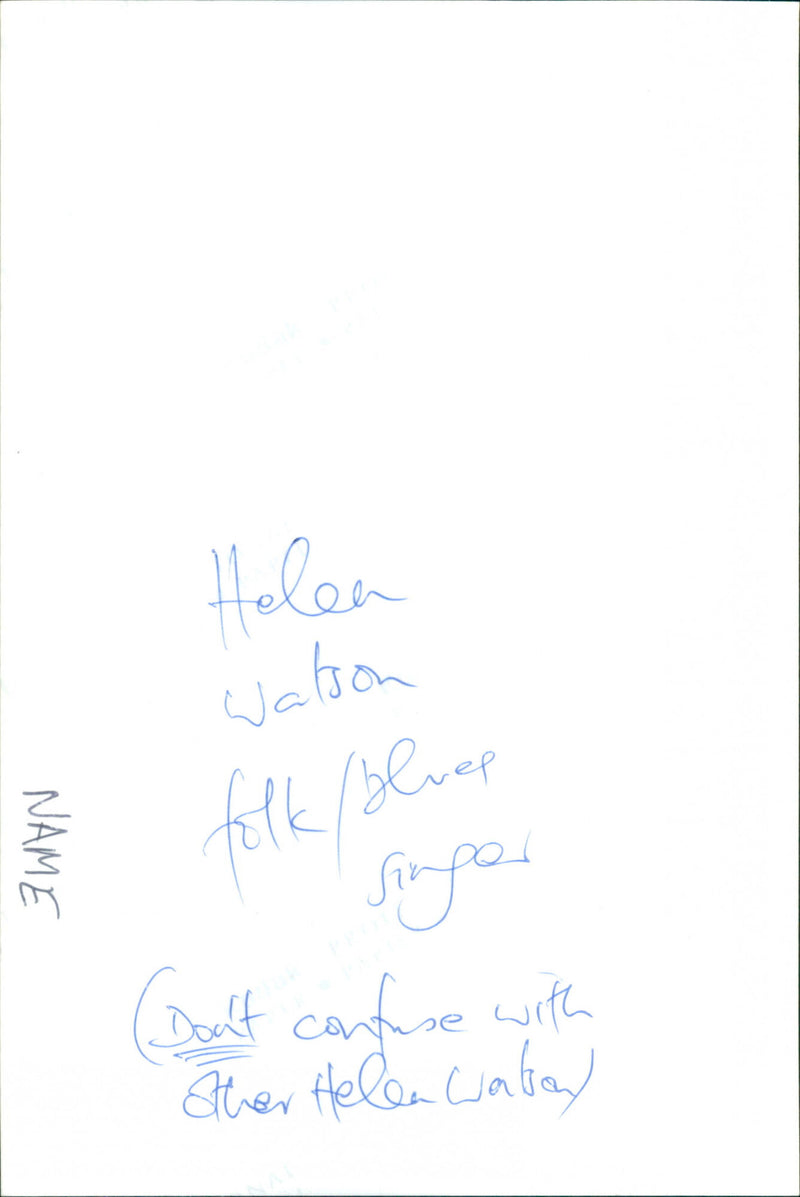 Helen
Watson
folk/blues
singer
NAME
(Don't confuse with
other Helen Watson)